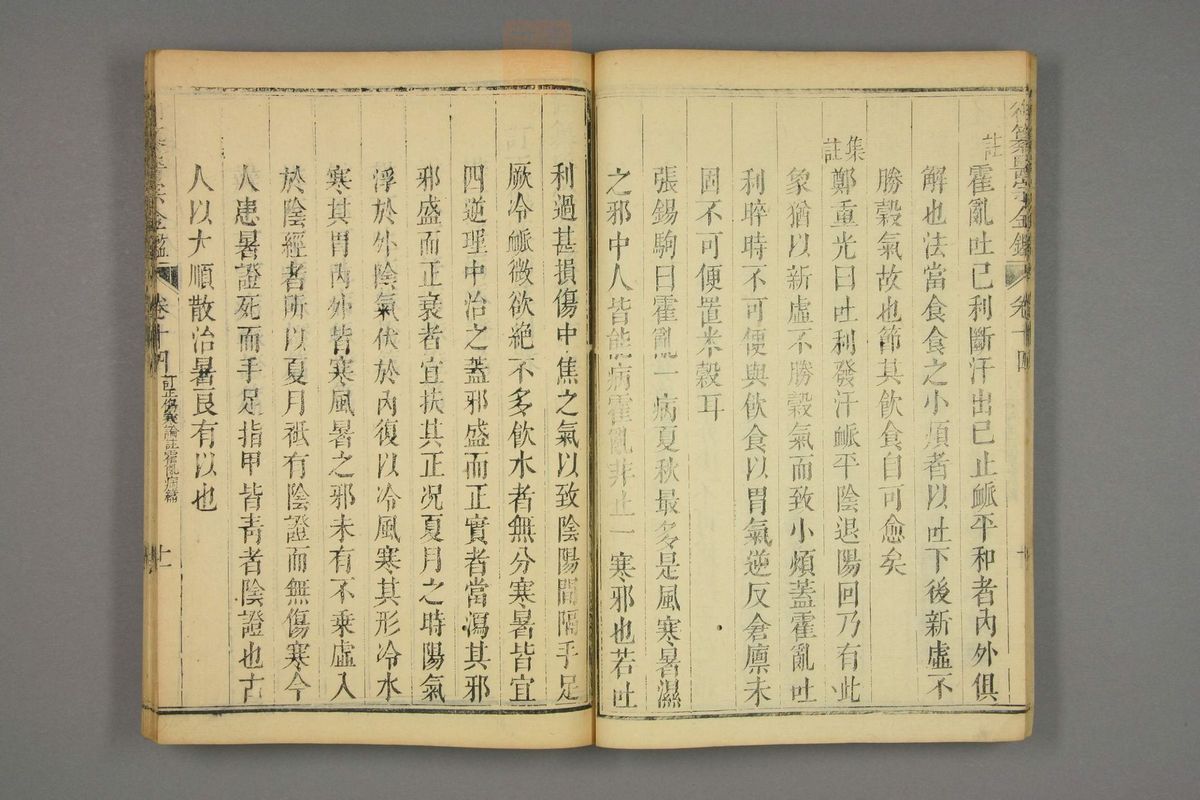 御纂醫宗金鑑
卷十四
十
註
霍亂吐已利斷汗出已止䘑平和者內外俱
解也法當食食之小煩者以吐下後新虛不
勝穀氣故也節其飲食自可愈矣
集註
鄭重光曰吐利發汗䘑平陰退陽回乃有此
象猶以新虛不勝穀氣而致小煩蓋霍亂吐
利晬時不可便與飲食以胃氣逆反倉廪未
固不可便置米穀耳
張錫駒曰霍亂一病夏秋最多是風寒暑濕
之邪中人皆能病霍亂非止一寒邪也若吐
利過甚損傷中焦之氣以致陰陽間隔手足
厥冷䘑微欲絶不多飲水者無分寒暑皆宜
四逆理中治之蓋邪盛而正實者當瀉其邪
邪盛而正衰者宜扶其正况夏月之時陽氣
浮於外陰氣伏於內復以冷風寒其形冷水
寒其胃內外皆寒風暑之邪未有不乘虛入
於陰經者所以夏月祗有陰證而無傷寒今
人患暑證死而手足指甲皆靑者陰證也古
人以大順散治暑良有以也
宗金鑑
卷十四
訂正傷寒論註霍亂病篇
十一